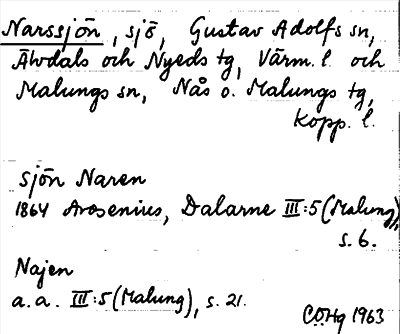 Narssjön, sjö, Gustav Adolfs sn,
Älvdals och Nyeds tg, Värm. l. och
Malungs sn, Nås o. Malungs tg,
Kopp. l.
Sjön Naren
1864 Arosenius, Dalarne III:5 (Malung),
s. 6.
Najen
a. a. III:5 (Malung), s. 21.
CÖHg 1963